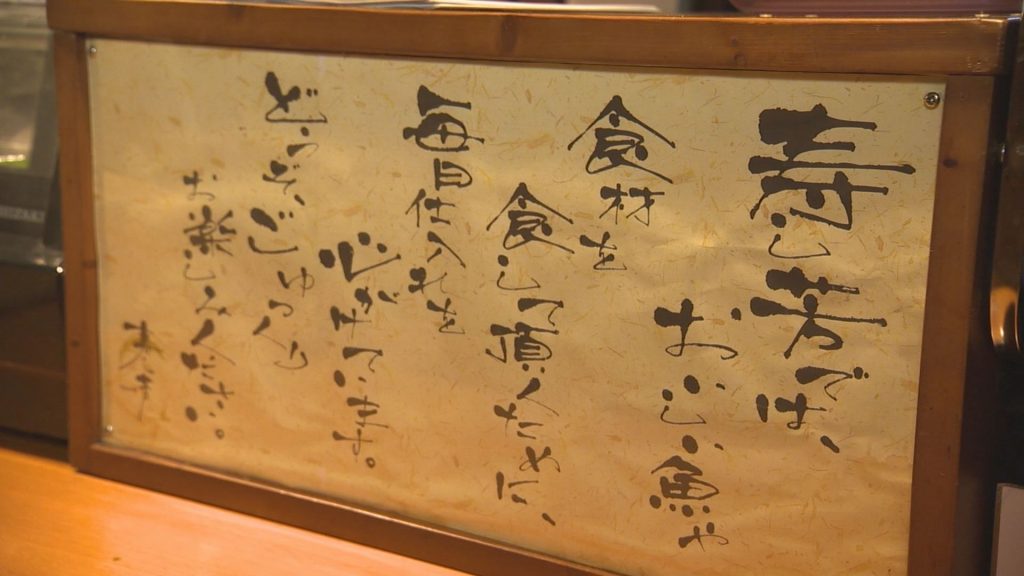 寿し芳では、
おいしい魚や
食材を
食して頂くために、
毎日仕入れを
心がけています。
どうぞ、ごゆっくり
お楽しみください。